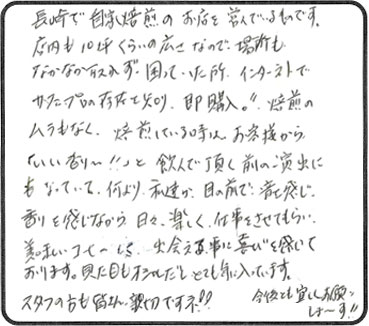 長崎で自家焙煎のお店を営んでいるものです。
店内も10坪くらいの広さなので、場所も
なかなか取れず、困っていた所、インターネットで
サンプルの存在を知り、即購入。〃 焙煎の
ムラもなく、焙煎している時は、お客様から
「いい香り〜!!」と飲んで頂く前の演出に
もなっていて、何より、私達が、目の前で、音を感じ、
香りを感じながら、日々、楽しく、仕事をさせてもらい、
美味しいコーヒーに出会える事に喜びを感じて
おります。見た目もオシャレだしとても気に入っています。
スタッフの方も皆さん、親切ですネ!!
今後とも宜しくお願い
しまーす!!